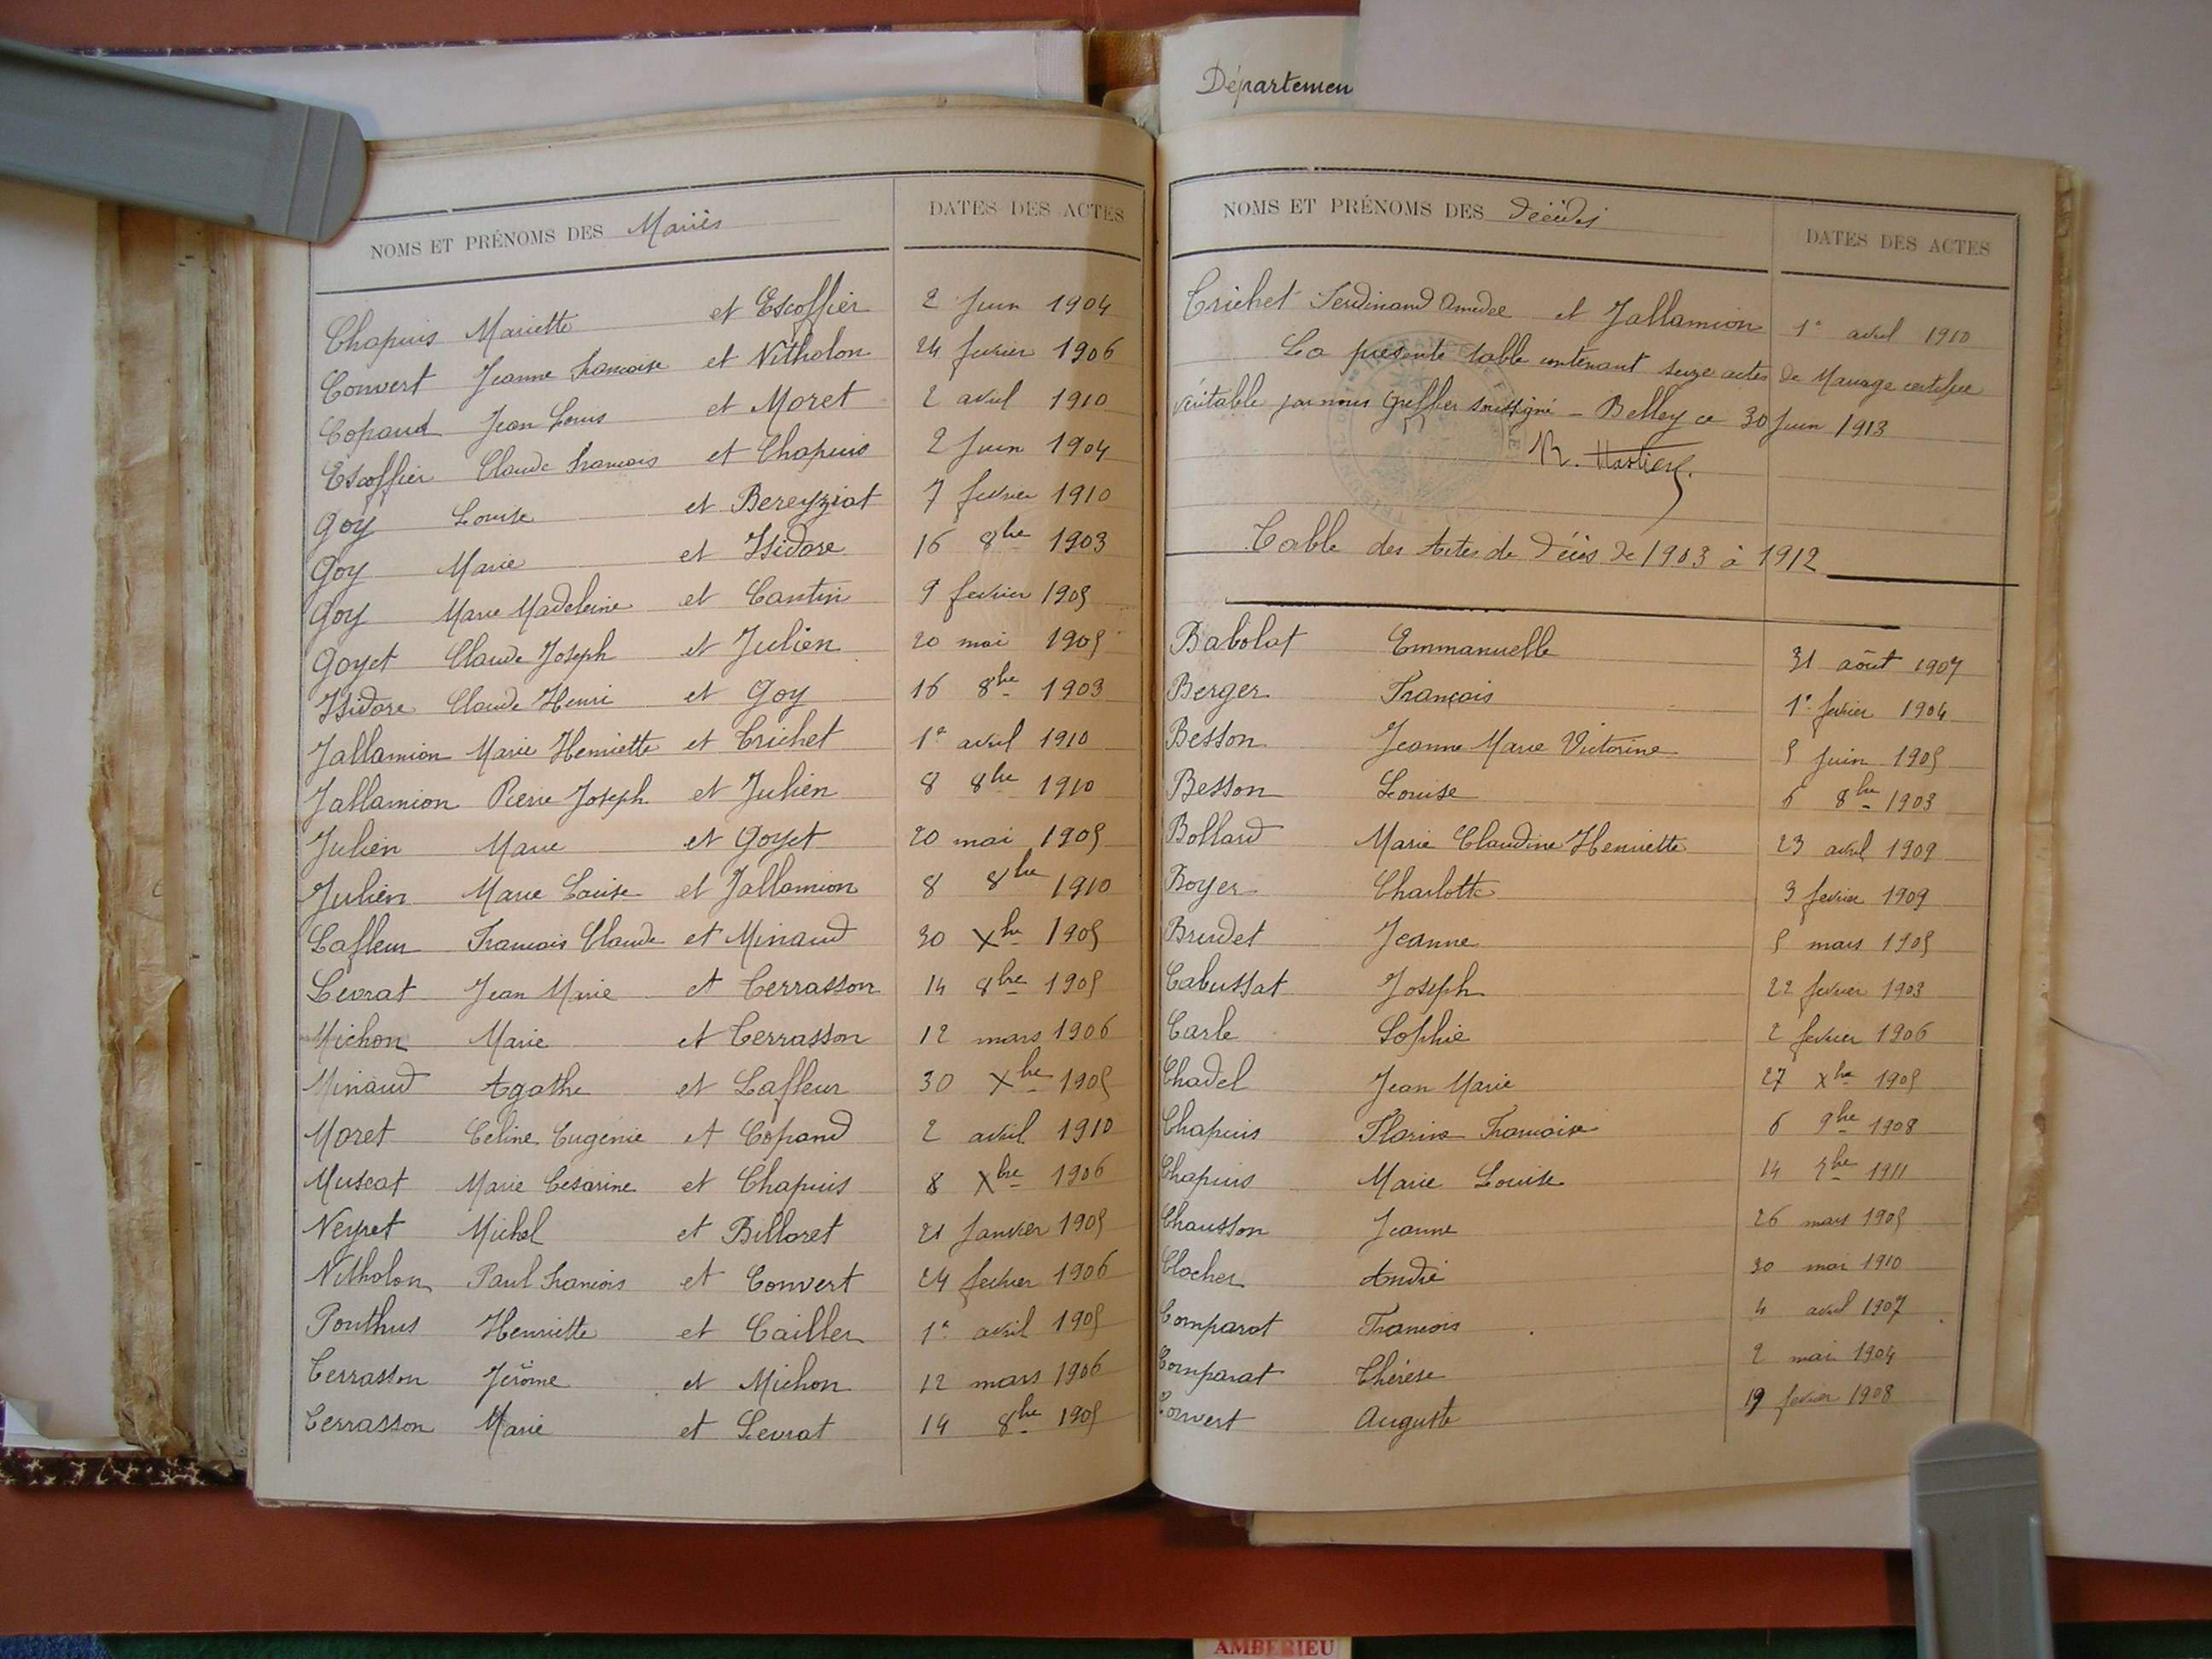 Départemen
NOMS ET PRÉNOMS DES Mariés DATES DES ACTES
Chapuis Mariette et Escoffier 2 Juin 1904
Convert Jeanne francoise et Nitholon 24 fevrier 1906
Copaud Jean Louis et Moret 2 avril 1910
Escoffier Claude francois et Chapuis 2 Juin 1904
Goy Louise et Bereyziat 7 fevrier 1910
Goy Marie et Isidore 16 8bre 1903
Goy Marie Madeleine et Cantin 9 fevrier 1905
Goyet Claude Joseph et Julien 20 mai 1905
Isidore Claude Henri et Goy 16 8bre 1903
Jallamion Marie Henriette et Trichet 1er avril 1910
Jallamion Pierre Joseph et Julien 8 8bre 1910
Julien Marie et Goyet 20 mai 1905
Julien Marie Louise et Jallamion 8 8bre 1910
Lafleur Francois Claude et Minaud 30 Xbre 1905
Levrat Jean Marie et Terrasson 14 8bre 1905
Michon Marie et Terrasson 12 mars 1906
Minaud Agathe et Lafleur 30 Xbre 1905
Moret Celine Eugenie et Copaud 2 avril 1910
Muscat Marie Cesarine et Chapuis 8 Xbre 1906
Neyret Michel et Billoret 21 Janvier 1905
Nitholon Paul francois et Convert 24 fevrier 1906
Ponthus Henriette et Cailler 1er avril 1905
Terrasson Jérôme et Michon 12 mars 1906
Terrasson Marie et Levrat 14 8bre 1905
NOMS ET PRÉNOMS DES Décédés DATES DES ACTES
Trichet Ferdinand Amedee et Jallamion 1er avril 1910
La presente table contenant seize actes de Mariage certifiee
véritable par nous Greffier soussigné - Belley ce 30 Juin 1913
Table des Actes de Décès de 1903 à 1912
Babolat Emmanuelle 31 août 1907
Berger François 1er fevrier 1904
Besson Jeanne Marie Victorine 5 Juin 1905
Besson Louise 6 8bre 1903
Bollard Marie Claudine Henriette 23 avril 1909
Boyer Charlotte 3 fevrier 1909
Brudet Jeanne 5 mars 1905
Cabussat Joseph 22 fevrier 1903
Carle Sophie 2 fevrier 1906
Chadel Jean Marie 27 Xbre 1905
Chapuis Florine Francoise 6 9bre 1908
Chapuis Marie Louise 14 7bre 1911
Chausson Jeanne 26 mars 1905
Clocher André 30 mai 1910
Comparat Francois 4 avril 1907
Comparat Thérèse 2 mai 1904
Convert Auguste 19 fevrier 1908
AMBERIEU